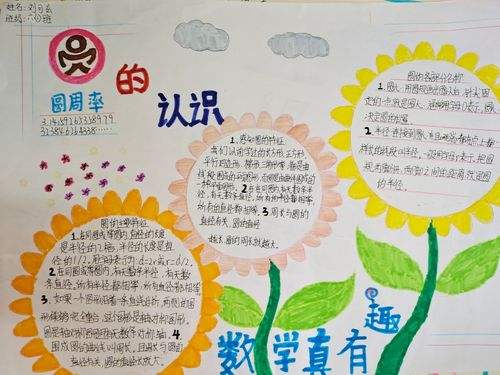 姓名:刘可
班级:六(1)班
圆周率
的
认识
3.14159265358979
32384626
圆的各部分名称
1.圆心:用圆规画出圆以后,针尖固
定的一点就是圆心,通常用字母O表示,圆心
决定圆的位置
2.半径:连接圆心和圆上任意一点
的半径
1.感知圆的特征
我们认识学过的长方形、正方形、
平行四边形、梯形、三角形等,都是由
线段围成的平面图形,而圆是由曲线围成的
一种平面图形。2.在同圆内,有无数条半
径,有无数条直径,所有的半径都相等,
所有的直径都相等。3.周长与圆的
直径有关,圆的直径
越长,圆的周长就越大。
圆的主要特征
1.在同圆或等圆内,直径的长度
是半径的2倍,半径的长度是直
径的1/2。用字母表示为:d=2r或r=d/2。
2.在同圆或等圆内,有无数条半径,有无数
条直径,所有半径都相等,所有直径都相等。
3.如果一个图形沿着一条直线对折,两侧的图
形能够完全重合,这个图形是轴对称图形。
圆是轴对称图形且有无数条对称轴。4.
围成圆的曲线叫周长,且周长与圆的
直径有关,圆的直径越大
数学真有
趣